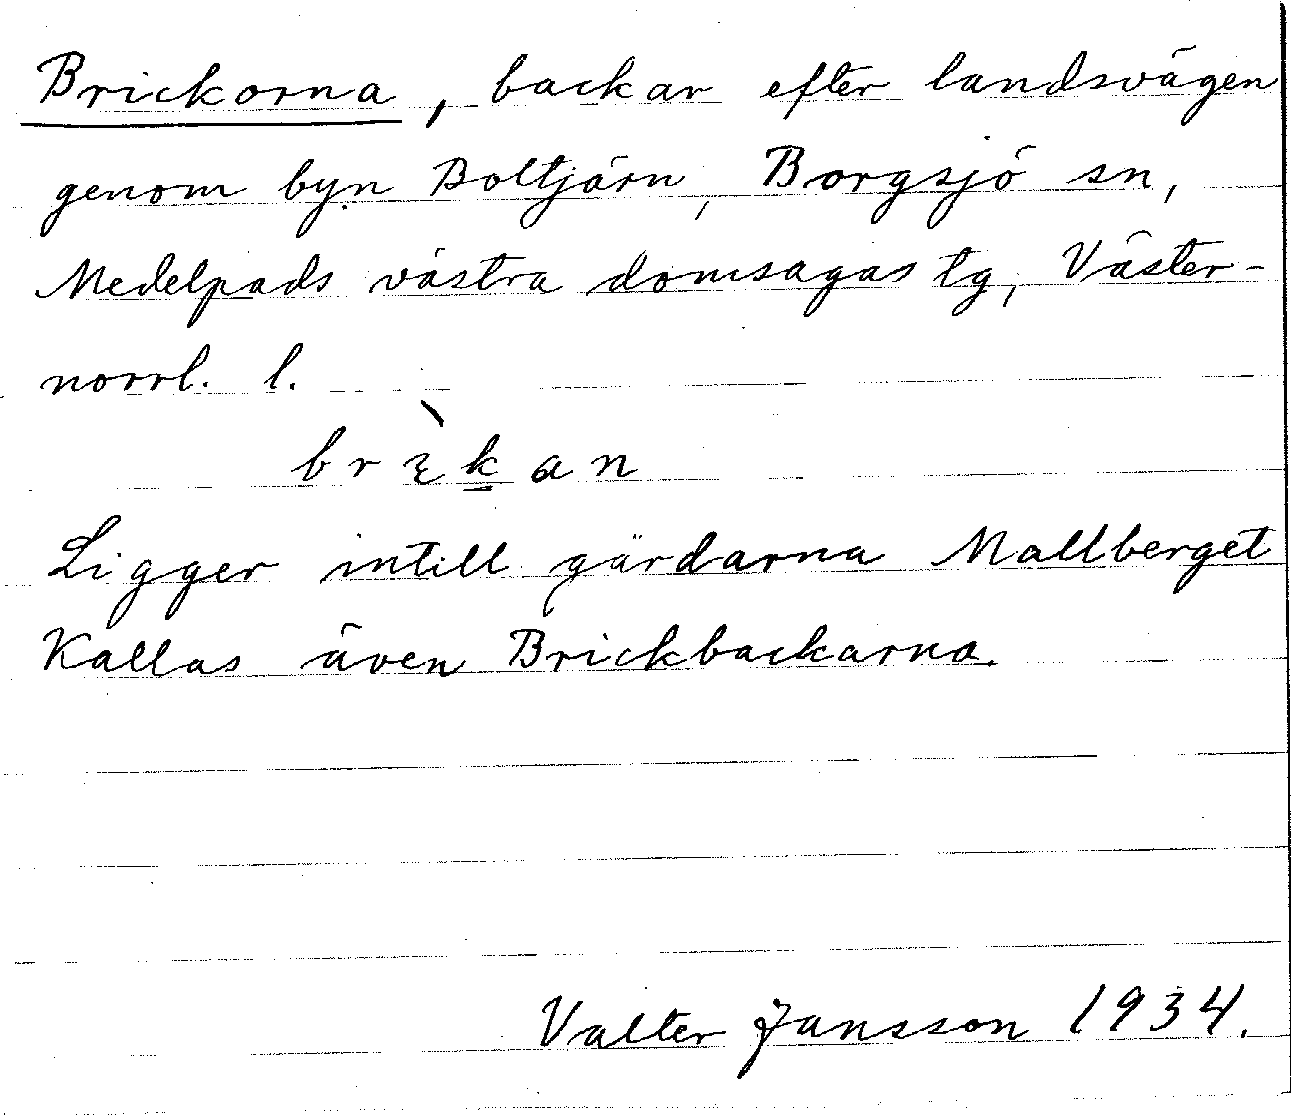 Brickorna, backar efter landsvägen
genom byn Boltjärn, Borgsjö sn,
Medelpads västra domsagas tg, Väster-
norrl. l.
brɩ̀k̲an
Ligger intill gårdarna Mallberget
Kallas även Brickbackarna.
Valter Jansson 1934.